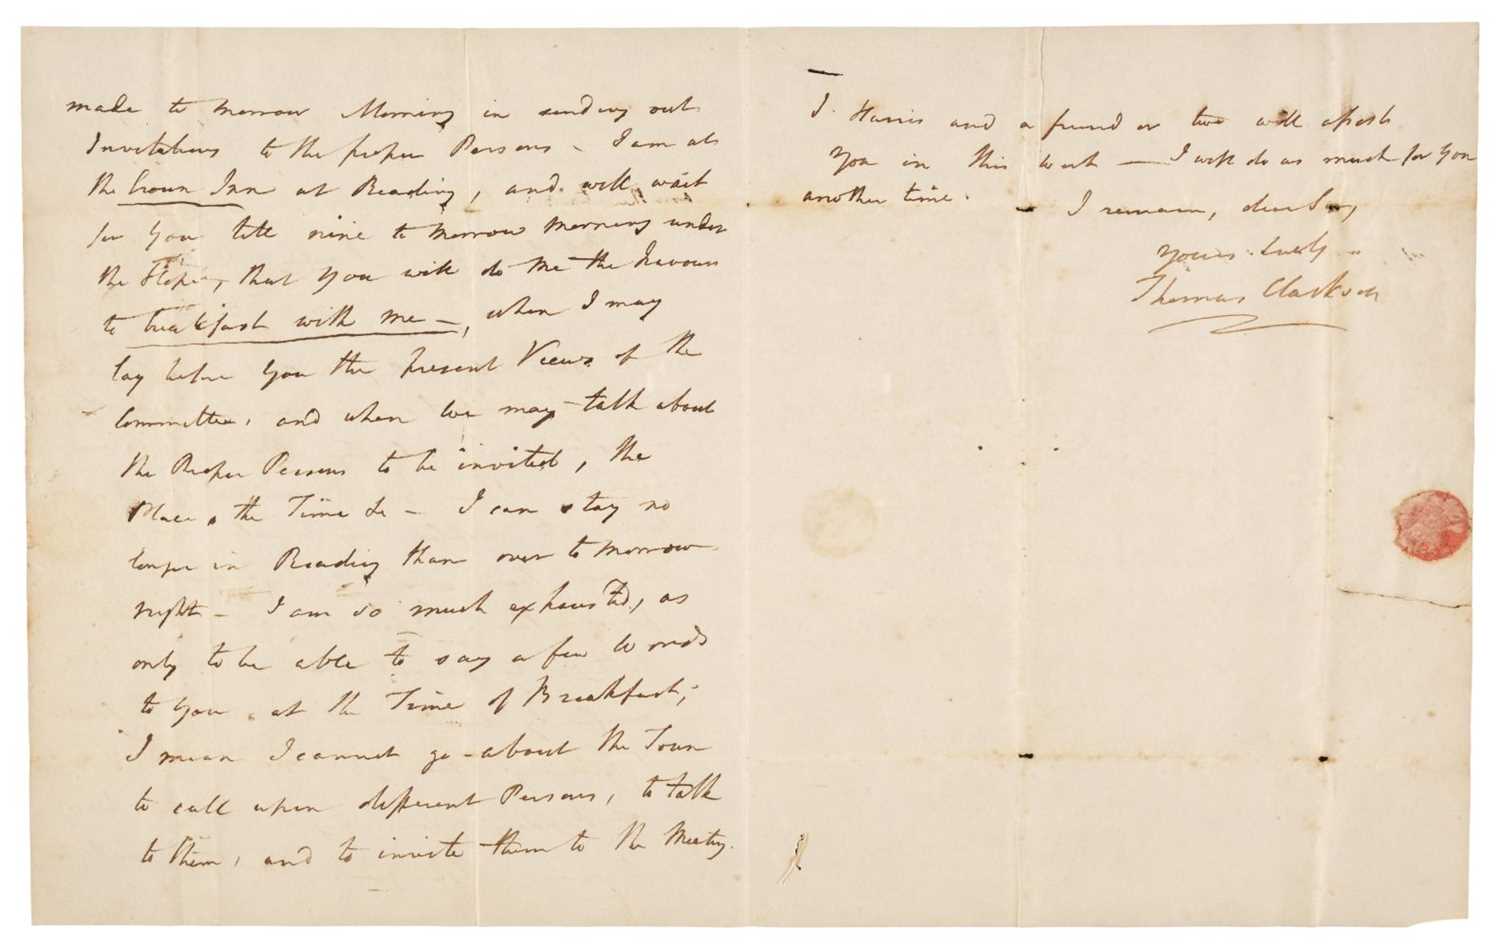 made to morrow Morning in sending out
Invitations to the proper Persons – I am at
the Crown Inn at Reading, and will wait
for You till nine to morrow morning under
the Hope, that You will do me the Favour
to breakfast with me –, when I may
lay before You the present Views of the
Committee, and when we may talk about
the Proper Persons to be invited, the
Place, the Time &c – I can stay no
longer in Reading than over to morrow
night – I am so much exhausted, as
only to be able to say a few Words
to You at the Time of Breakfast;
I mean I cannot go about the Town
to call upon different Persons, to talk
to them, and to invite them to the Meeting.
J. Harris and a friend or two will assist
You in this Work – I will do as much for You
another time.
I remain, dear Sir,
Yours truly
Thomas Clarkson